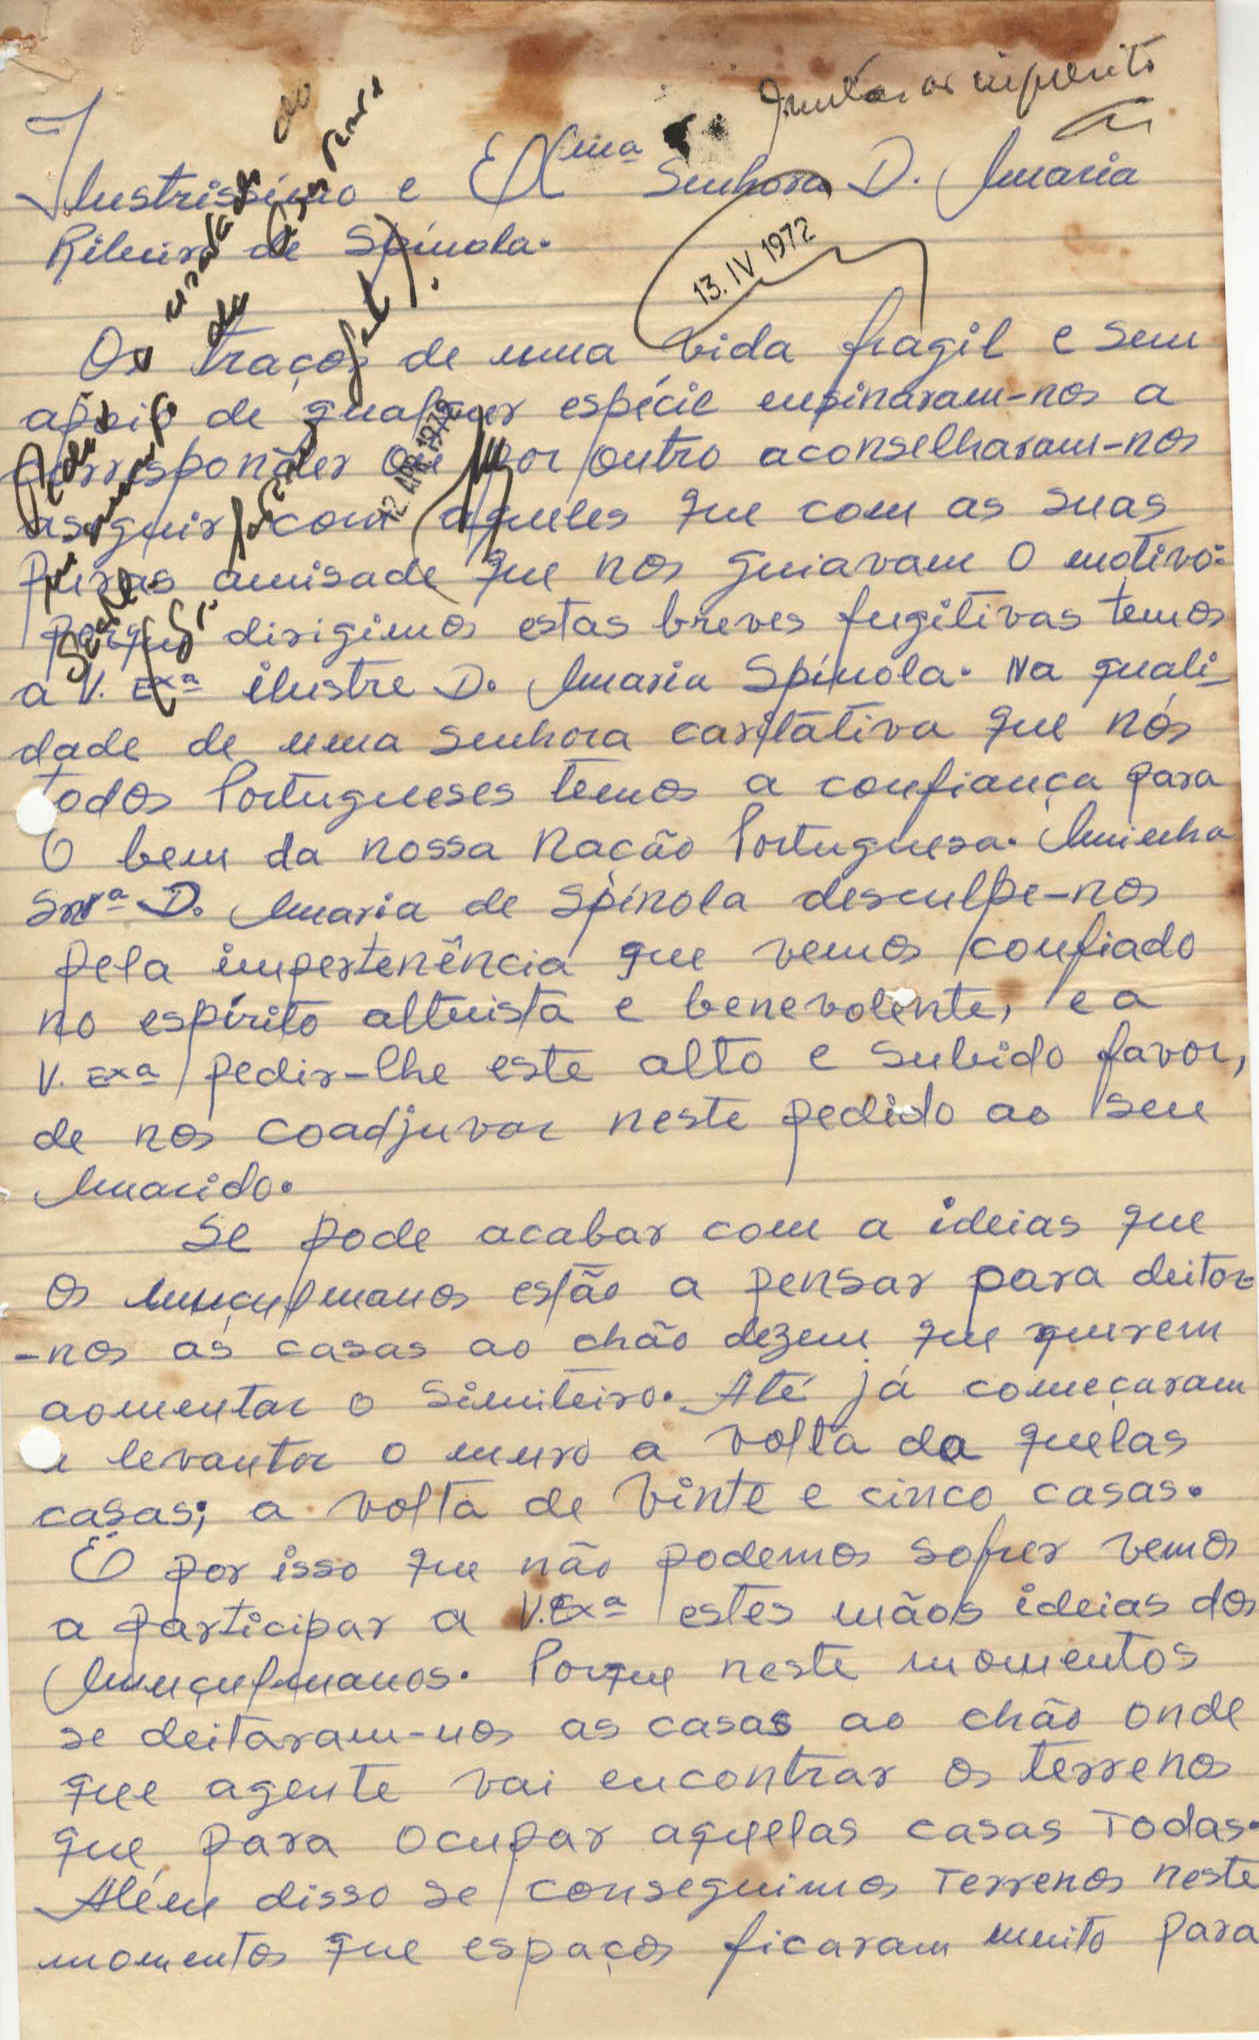 Juntar ao
Ilustrissimo e Exma Senhora D. Maria
Ribeiro de Spínola.
13. IV 1972
Os traços de uma vida fragil e sem
apoio de qualquer espécie ensinaram-nos a
corresponder ou por outro aconselharam-nos
aseguir com aqueles que com as suas
puras amisade que nos guiavam O motivo:
porque dirigimos estas breves fugitivas temos
a V. Exª ilustre D. Maria Spínola. Na quali-
dade de uma senhora caritativa que nós
todos Portugueses temos a confiança para
O bem da nossa Nação Portuguesa. Minha
Snrª D. Maria de Spínola desculpe-nos
pela impertenência que vemos confiado
no espírito altuista e benevolente, e a
V. Exª pedir-lhe este alto e subido favor,
de nos coadjuvar neste pedido ao seu
Marido.
Se pode acabar com a ideias que
os Muçulmanos estão a pensar para deitar
-nos as casas ao chão dezem que querem
aomentar o Simiteiro. Até já começaram
a levantar o muro a volta da quelas
casas; a volta de Vinte e cinco casas.
É por isso que não podemos sofrer vemos
a participar a V.Exª estes mãos ideias dos
Muçulmanos. Porque neste momentos
se deitaram-nos as casas ao chão onde
que agente vai encontrar os terrenos
que para ocupar aquelas casas Todas.
Além disso se conseguimos Terrenos neste
momentos que espaços ficaram muito para
12 ABR. 1972